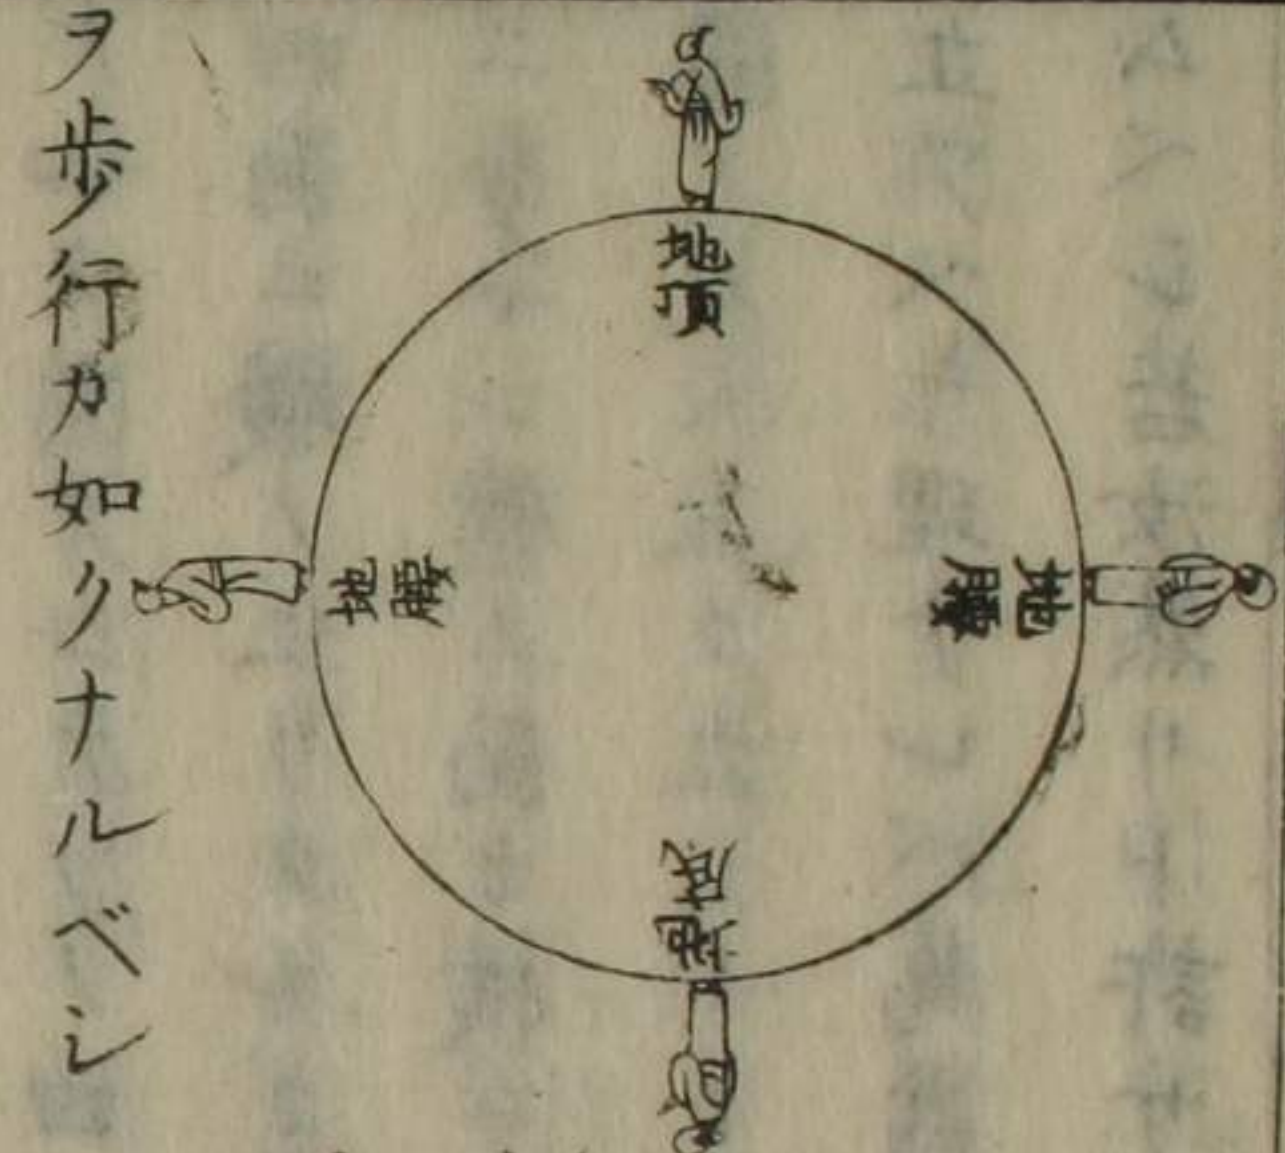 地頂
地腰
地腰
ヲ歩行カ如クナルベシ